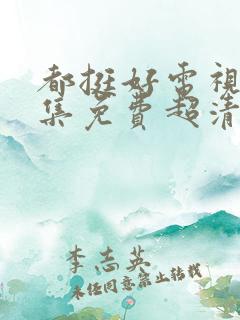 都挺好電視
集免費超清
李志英
未经同意禁止转载